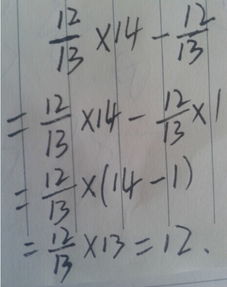 12/13 ×14 − 12/13
= 12/13 ×14 − 12/13 ×1
= 12/13 ×(14−1)
= 12/13 ×13 = 12.